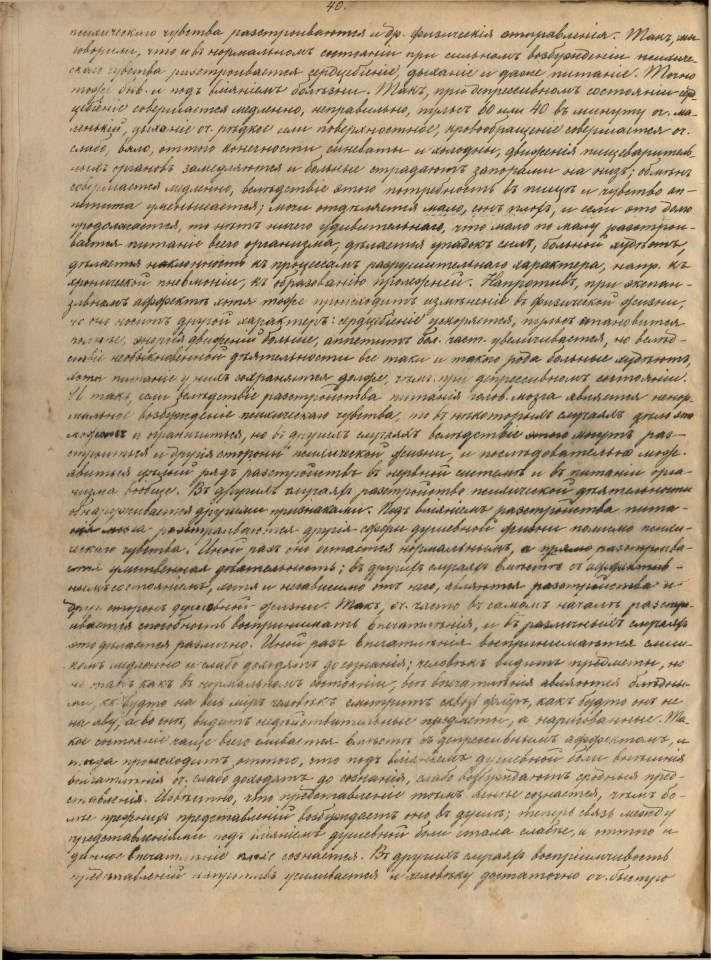 40.
психическаго чувства разстроиваются и др. физическія отправленія. Такъ, мы
говорили, что и въ нормальномъ состояніи при сильномъ возбужденіи психиче-
скаго чувства разстроивается сердцебіеніе, дыханіе и даже питаніе. Точно
тоже быв. и подъ вліяніемъ болѣзни. Такъ, при депрессивномъ состояніи серд-
цебіеніе совершается медленно, неправильно, пульсъ 60 или 40 въ минуту оч. ма-
ленькій, дыханіе оч. рѣдкое или поверхностное, кровообращеніе совершается оч.
слабо, вяло, оттого конечности синеваты и холодны, движенія пищеваритель-
ныхъ органовъ замедляются и больные страдаютъ запорами на низъ; обмѣнъ
совершается медленно, вслѣдствіе этого потребность въ пищѣ и чувство ап-
петита уменьшается; мочи отдѣляется мало, сонъ плохъ, и если это долго
продолжается, то нѣтъ ничего удивительнаго, что мало по малу разстрои-
вается питаніе всего организма, дѣлается упадокъ силъ, больной худѣетъ,
дѣлается наклонность къ процессамъ разрушительнаго характера, напр. къ
хронической пневмоніи, къ образованію пролежней. Напротивъ, при экспан-
зивномъ аффектѣ хотя тоже происходитъ измѣненіе въ физической жизни,
но оно носитъ другой характеръ: сердцебіеніе ускоряется, пульсъ становится
полнѣе, энергія движеній больше, аппетитъ бол. част. увеличивается, но вслѣд-
ствіе необыкновенной дѣятельности все таки и такого рода больные худѣютъ,
хотя питаніе у нихъ сохраняется долѣе, чѣмъ при депрессивномъ состояніи.
И такъ, если вслѣдствіе разстройства питанія голов. мозга является ненор-
мальное возбужденіе психическаго чувства, то въ нѣкоторыхъ случаяхъ дѣло этимъ
можетъ и ограничиться, но въ другихъ случаяхъ вслѣдствіе этого могутъ раз-
строиться и другія стороны психической жизни, и послѣдовательно може.
явиться цѣлый рядъ разстройствъ въ нервной системѣ и въ питаніи орга-
низма вообще. Въ другихъ случаяхъ разстройство психической дѣятельности
обнаруживается другими признаками. Подъ вліяніемъ разстройства пита-
нія мозга разстраиваются другія сферы душевной жизни помимо психи-
ческаго чувства. Иной разъ оно остается нормальнымъ, а прямо разстроива-
ется умственная дѣятельность; въ другихъ случаяхъ вмѣстѣ съ аффектив-
нымъ состояніемъ, хотя и независимо отъ него, являются разстройства и
друг. сторонъ душевной жизни. Такъ, оч. часто въ самомъ началѣ разстро-
ивается способность воспринимать впечатлѣнія, и въ различныхъ случаяхъ
это дѣлается различно. Иной разъ впечатлѣнія воспринимаются слиш-
комъ медленно и слабо доходятъ до сознанія; человѣкъ видитъ предметы, но
не такъ какъ въ нормальномъ состояніи, всѣ впечатлѣнія являются блѣдны-
ми, какъ будто на весь міръ человѣкъ смотритъ сквозь флёръ, какъ будто онъ не
на яву, а во снѣ, видитъ недѣйствительные предметы, а нарисованные. Та-
кое состояніе чаще всего сливается вмѣстѣ съ депрессивнымъ аффектомъ, и
тогда происходитъ оттого, что подъ вліяніемъ душевной боли внѣшнія
впечатлѣнія оч. слабо доходятъ до сознанія, слабо возбуждаютъ сродныя пред-
ставленія. Извѣстно, что представленіе тѣмъ яснѣе сознается, чѣмъ бо-
лѣе представленій возбуждаетъ оно въ душѣ; теперь связь между
представленіями подъ вліяніемъ душевной боли стала слабѣе, и оттого и
данное впечатлѣніе плохо сознается. Въ другихъ случаяхъ воспріимчивость
представленій напротивъ усиливается и человѣку достаточно оч. быстро